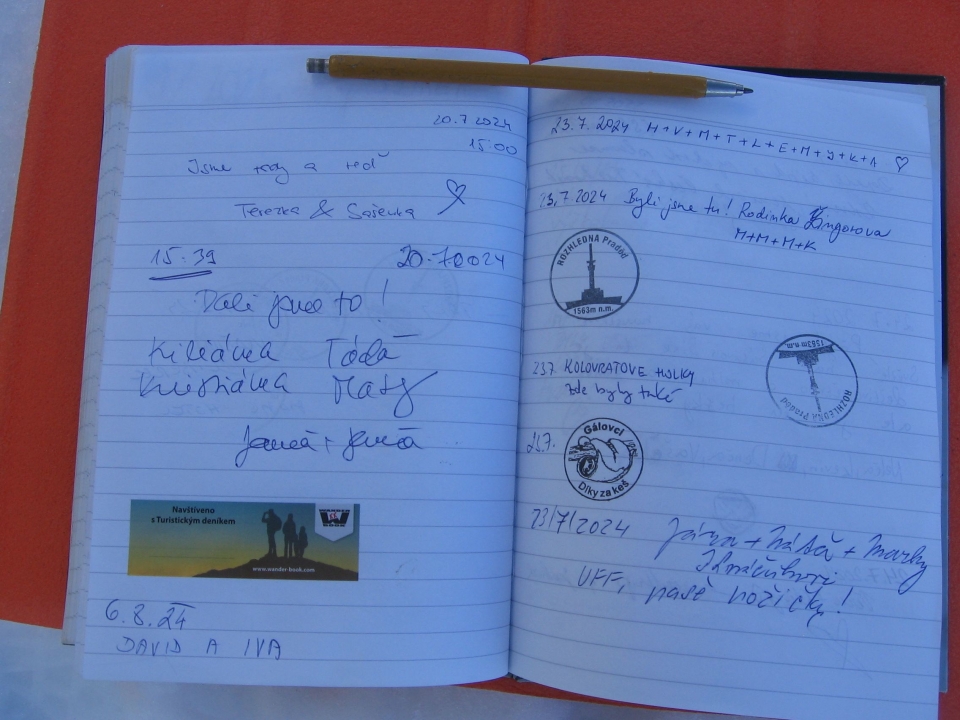 20.7.2024
15:00
Jsme tady a teď
Terezka & Sašenka
15:39 20.7.2024
Dali jsme to!
Kiliánka Tóďa
Kristiánka Maty
Navštíveno
s Turistickým deníkem
WANDER BOOK
www.wander-book.com
6.8.24
DAVID A IVA
23.7.2024 H+V+M+T+L+E+M+J+K+A
23.7.2024 Byli jsme tu! Rodinka Žingorova
M+M+M+K
ROZHLEDNA Praděd
1563m n.m.
ROZHLEDNA Praděd
1563m n.m.
23.7. KOLOVRATOVE HOLKY
zde byly také
23.7.
Gálovci
Díky za keš
23/7/2024
UFF, naše nožičky!